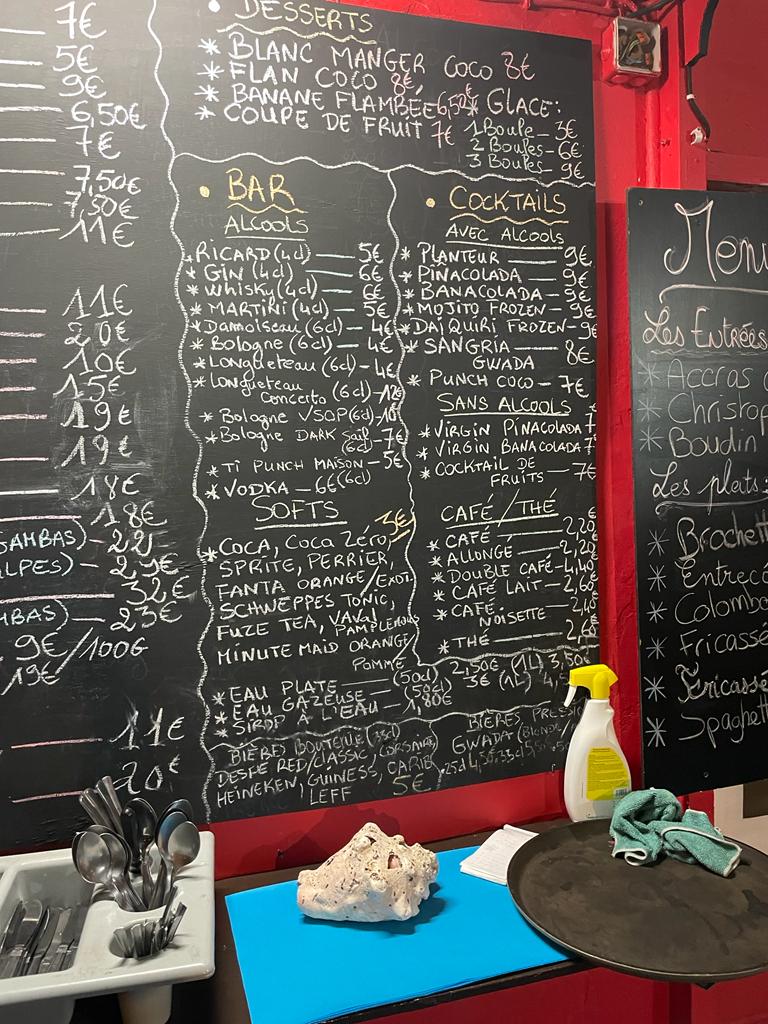 7€
5€
9€
6,50€
7€
7,50€
7,50€
11€
11€
20€
10€
15€
19€
19€
18€
18€
GAMBAS) - 22
ALPES) - 25€
32€
MBAS) - 23€
9€/100G
19€
11€
20€
• DESSERTS
* BLANC MANGER COCO 8€
* FLAN COCO 8€
* BANANE FLAMBÉE 6,50€
* COUPE DE FRUIT 7€
* GLACE:
1 Boule - 3€
2 Boules - 6€
3 Boules - 9€
• BAR
ALCOOLS
* RICARD (4cl) — 5€
* GIN (4cl) — 6€
* WHISKY (4cl) — 6€
* MARTINI (4cl) — 5€
* Damoiseau (6cl) - 4€
* Bologne (6cl) - 4€
* Longueteau (6cl) - 4€
* Longueteau
Concerto (6cl) - 12€
* Bologne VSOP (6cl) 10€
* Bologne DARK
(6cl) - 7€
* TI PUNCH MAISON - 5€
(6cl)
* VODKA - 6€
SOFTS 3€
* COCA, COCA Zero,
SPRITE, PERRIER,
FANTA ORANGE/EXOT.
SCHWEPPES TONIC,
FUZE TEA, VAVAL PAMPLEMOUS
MINUTE MAID ORANGE
POMME
* EAU PLATE — (50cl) 2,50€ (1L) 3,50€
* EAU GAZEUSE — (50cl) 3€ (1L) 4,5
* SIROP À L'EAU — 1,80€
BIÈRES BOUTEILLE (33cl)
DESPE RED/CLASSIC, CORSAIRE
HEINEKEN, GUINESS, CARIB
LEFF 5€
BIÈRES PRESSI
GWADA (BLONDE/
• COCKTAILS
AVEC ALCOOLS
* PLANTEUR — 9€
* PINACOLADA — 9€
* BANACOLADA — 9€
* MOJITO FROZEN - 9€
* DAÏQUIRI FROZEN - 9€
* SANGRIA
GWADA 8€
* PUNCH COCO - 7€
SANS ALCOOLS
* VIRGIN PINACOLADA 7
* VIRGIN BANACOLADA 7€
* COCKTAIL DE
FRUITS — 7€
CAFÉ / THÉ
* CAFÉ — 2,20€
* ALLONGE — 2,20€
* DOUBLE CAFÉ - 4,40€
* CAFÉ LAIT - 2,60€
* CAFÉ
NOISETTE — 2,40€
* THÉ — 2,60€
Menu
Les Entrées
* Accras
* Christop
* Boudin
Les plats:
* Brochett
* Entrecô
* Colombo
* Fricassé
* Fricassé
* Spaghett